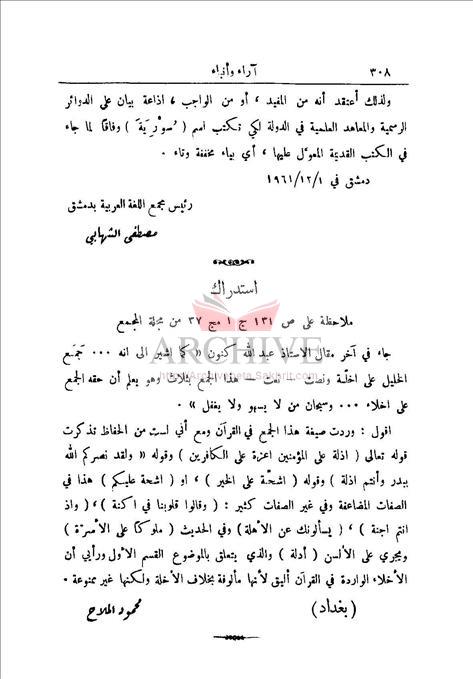 ٣٠٨ آراء وأنباء
ولذلك أعتقد أنه من المفيد ، أو من الواجب ، اذاعة بيان على الدوائر
الرسمية والمعاهد العلمية في الدولة لكي تكتب اسم ( سُورْيَةَ ) وفاقاً لما جاء
في الكتب القديمة المعوّل عليها ، أي بياء مخففة وتاء .
دمشق في ١٩٦١/١٢/١
رئيس مجمع اللغة العربية بدمشق
مصطفى الشهابي
استدراك
ملاحظة على ص ١٣١ ج ١ مج ٣٧ من مجلة المجمع
جاء في آخر مقال الاستاذ عبد الله كنون « كما اشير الى انه ... جَمَع
ARCHIVE
http://Archivebeta.Sakhrit.com
الخليل على اخلّة ونصت – نعت – هذا الجمع بثلاث وهو يعلم أن حقه الجمع
على اخلاء ... وسبحان من لا يسهو ولا يغفل » .
اقول : وردت صيغة هذا الجمع في القرآن ومع أني لست من الحفاظ تذكرت
قوله تعالى ( اذلة على المؤمنين اعزة على الكافرين ) وقوله « ولقد نصركم الله
ببدر وأنتم اذلة ) وقوله ( اشحّة على الخير ) ، او ( اشحة عليكم ) هذا في
الصفات المضاعفة وفي غير الصفات كثير : ( وقالوا قلوبنا في اكنة ) ، ( واذ
انتم اجنة ) ، ( يسألونك عن الأهلة ) وفي الحديث ( ملوكاً على الأسرّة )
ويجري على الألسن ( أدلة ) والذي يتعلق بالموضوع القسم الأول ورأيي أن
الأخلاء الواردة في القرآن أليق لأنها مألوفة بخلاف الأخلة ولكنها غير ممنوعة .
( بغداد ) محمود الملاح